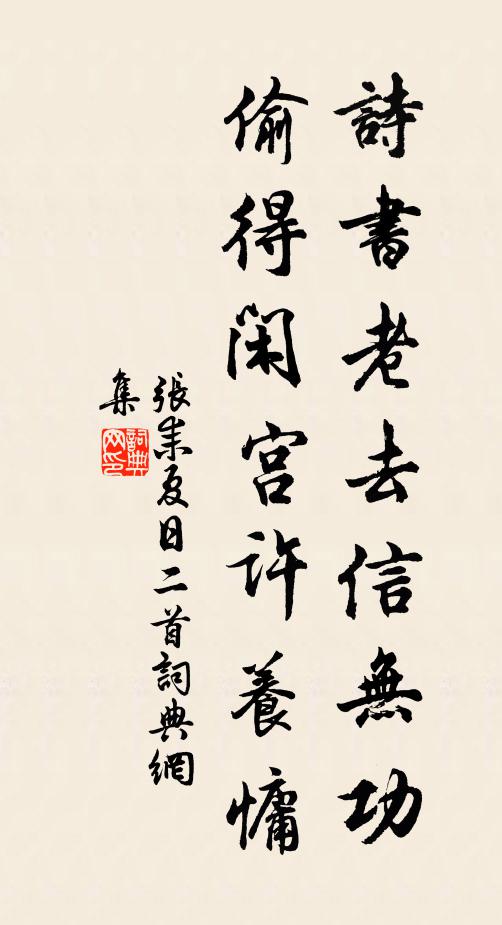 詩書老去信無功
偷得閑宮許養慵
張耒夏日二首詞典網
集
詞典网印